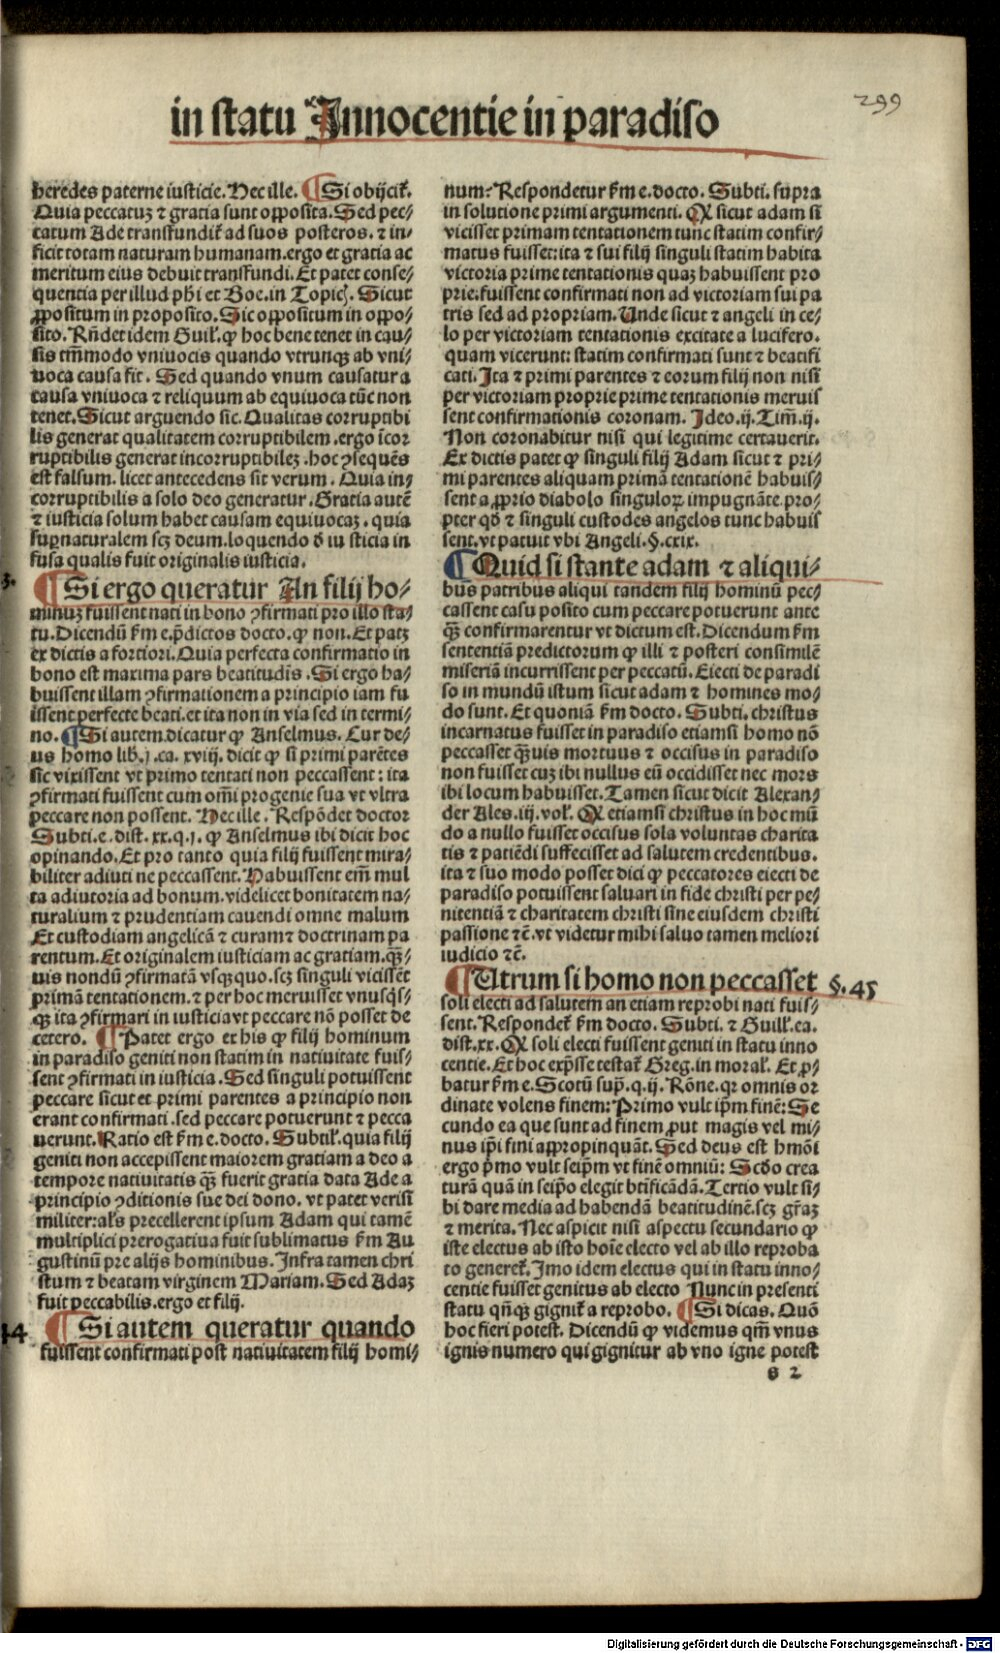 299
in statu Innocentie in paradiso
heredes paterne iusticie. Hec ille. ¶ Si obijcit̄.
Quia peccatuꝫ ⁊ gratia sunt opposita. Sed pec⸗
catum Ade transfundit̄ ad suos posteros. ⁊ in⸗
ficit totam naturam humanam. ergo et gratia ac
meritum eius debuit transfundi. Et patet conse⸗
quentia per illud ph̄i et Boe. in Topic̄. Sicut
ꝓpositum in proposito. Sic oppositum in oppo⸗
sito. Rn̄det idem Guil̄. ꝙ hoc bene tenet in cau⸗
sis tm̄modo vniuocis quando vtrunqꝫ ab vni⸗
uoca causa fit. Sed quando vnum causatur a
causa vniuoca ⁊ reliquum ab equiuoca tūc non
tenet. Sicut arguendo sic. Qualitas corruptibi
lis generat qualitatem corruptibilem. ergo īcor
ruptibilis generat incorruptibileꝫ. hoc ꝯsequēs
est falsum. licet antecedens sit verum. Quia in⸗
corruptibilis a solo deo generatur. Gratia autē
⁊ iusticia solum habet causam equiuocaꝫ. quia
suꝑnaturalem scꝫ deum. loquendo d̄ iu sticia in
fusa qualis fuit originalis iusticia.
3. ¶ Si ergo queratur An filij ho⸗
minuꝫ fuissent nati in bono ꝯfirmati pro illo sta⸗
tu. Dicendū ẜm e. p̄dictos docto. ꝙ non. Et patꝫ
ex dictis a fortiori. Quia perfecta confirmatio in
bono est maxima pars beatitudīs. Si ergo ha⸗
buissent illam ꝯfirmationem a principio iam fu
issent perfecte beati. et ita non in via sed in termi⸗
no. ¶ Si autem dicatur ꝙ Anselmus. Cur de⸗
us homo lib. j. ca. xviij. dicit ꝙ si primi parētes
sic vixissent vt primo tentati non peccassent: ita
ꝯfirmati fuissent cum om̄i progenie sua vt vltra
peccare non possent. Hec ille. Respōdet doctor
Subti. e. dist. xx. q. j. ꝙ Anselmus ibi dicit hoc
opinando. Et pro tanto quia filij fuissent mira⸗
biliter adiuti ne peccassent. Habuissent em̄ mul
ta adiutoria ad bonum. videlicet bonitatem na⸗
turalium ⁊ prudentiam cauendi omne malum
Et custodiam angelicā ⁊ curam ⁊ doctrinam pa
rentum. Et originalem iusticiam ac gratiam. qꝫ̄⸗
uis nondū ꝯfirmatā vsqꝫquo. scꝫ singuli vicissēt
primā tentationem. ⁊ per hoc meruisset vnusq̄s⸗
qꝫ ita ꝯfirmari in iusticia vt peccare nō posset de
cetero. ¶ Patet ergo ex his ꝙ filij hominum
in paradiso geniti non statim in natiuitate fuis⸗
sent ꝯfirmati in iusticia. Sed singuli potuissent
peccare sicut et primi parentes a principio non
erant confirmati. sed peccare potuerunt ⁊ pecca
uerunt. Ratio est ẜm e. docto. Subtil̄. quia filij
geniti non accepissent maiorem gratiam a deo a
tempore natiuitatis qꝫ̄ fuerit gratia data Ade a
principio ꝯditionis sue dei dono. vt patet verisi
militer: al̄s precellerent ipsum Adam qui tamē
multiplici prerogatiua fuit sublimatus ẜm Au
gustinū pre alijs hominibus. Infra tamen chri
stum ⁊ beatam virginem Mariam. Sed Adaꝫ
fuit peccabilis. ergo et filij.
44 ¶ Si autem queratur quando
fuissent confirmati post natiuitatem filij homi⸗
num: Respondetur ẜm e. docto. Subti. supra
in solutione primi argumenti. Qꝫ sicut adam si
vicisset primam tentationem tunc statim confir⸗
matus fuisset: ita ⁊ sui filij singuli statim habita
victoria prime tentationis quaꝫ habuissent pro
prie. fuissent confirmati non ad victoriam sui pa
tris sed ad propriam. Unde sicut ⁊ angeli in ce⸗
lo per victoriam tentationis excitate a lucifero.
quam vicerunt: statim confirmati sunt ⁊ beatifi
cati. Ita ⁊ primi parentes ⁊ eorum filij non nisi
per victoriam proprie prime tentationis meruis
sent confirmationis coronam. Ideo. ij. Tim̄. ij.
Non coronabitur nisi qui legitime certauerit.
Ex dictis patet ꝙ singuli filij Adam sicut ⁊ pri⸗
mi parentes aliquam primā tentationē habuis⸗
sent a ꝓprio diabolo singuloꝝ impugnāte. pro⸗
pter qd̄ ⁊ singuli custodes angelos tunc habuis
sent. vt patuit vbi Angeli. §. cxix.
¶ Quid si stante adam ⁊ aliqui⸗
bus patribus aliqui tandem filij hominū pec⸗
cassent casu posito cum peccare potuerunt ante
qꝫ̄ confirmarentur vt dictum est. Dicendum ẜm
sententiā predictorum ꝙ illi ⁊ posteri consimilē
miseriā incurrissent per peccatū. Eiecti de paradi
so in mundū istum sicut adam ⁊ homines mo⸗
do sunt. Et quoniā ẜm docto. Subti. christus
incarnatus fuisset in paradiso etiamsi homo nō
peccasset qꝫ̄uis mortuus ⁊ occisus in paradiso
non fuisset cuꝫ ibi nullus eū occidisset nec mors
ibi locum habuisset. Tamen sicut dicit Alexan⸗
der Ales. iij. vol̄. Qꝫ etiamsi christus in hoc mū
do a nullo fuisset occisus sola voluntas charita
tis ⁊ patiēdi suffecisset ad salutem credentibus.
ita ⁊ suo modo posset dici ꝙ peccatores eiecti de
paradiso potuissent saluari in fide christi per pe⸗
nitentiā ⁊ charitatem christi sine eiusdem christi
passione ⁊c̄. vt videtur mihi saluo tamen meliori
iudicio ⁊c̄.
¶ Utrum si homo non peccasset §. 45
soli electi ad salutem an etiam reprobi nati fuis⸗
sent. Respondet̄ ẜm docto. Subti. ⁊ Guil̄. ea.
dist. xx. Qꝫ soli electi fuissent geniti in statu inno
centie. Et hoc exp̄sse testat̄ Greg. in moral̄. Et ꝓ⸗
batur ẜm e. Scotū sup̄. q. ij. Rōne. qꝛ omnis or
dinate volens finem: Primo vult ip̄m finē: Se
cundo ea que sunt ad finem ꝓut magis vel mi⸗
nus ip̄i fini appropinquāt. Sed deus est hmōi
ergo p̄mo vult seip̄m vt finē omniū: Scd̄o crea
turā quā in seip̄o elegit btīficādā. Tertio vult si⸗
bi dare media ad habendā beatitudinē. scꝫ gr̄aꝫ
⁊ merita. Nec aspicit nisi aspectu secundario ꝙ
iste electus ab isto hoīe electo vel ab illo reproba
to generet̄. Imo idem electus qui in statu inno⸗
centie fuisset genitus ab electo Nunc in presenti
statu qn̄qꝫ gignit̄ a reprobo. ¶ Si dicas. Quō
hoc fieri potest. Dicendū ꝙ videmus qm̄ vnus
ignis numero qui gignitur ab vno igne potest
s 2
Digitalisierung gefördert durch die Deutsche Forschungsgemeinschaft - DFG